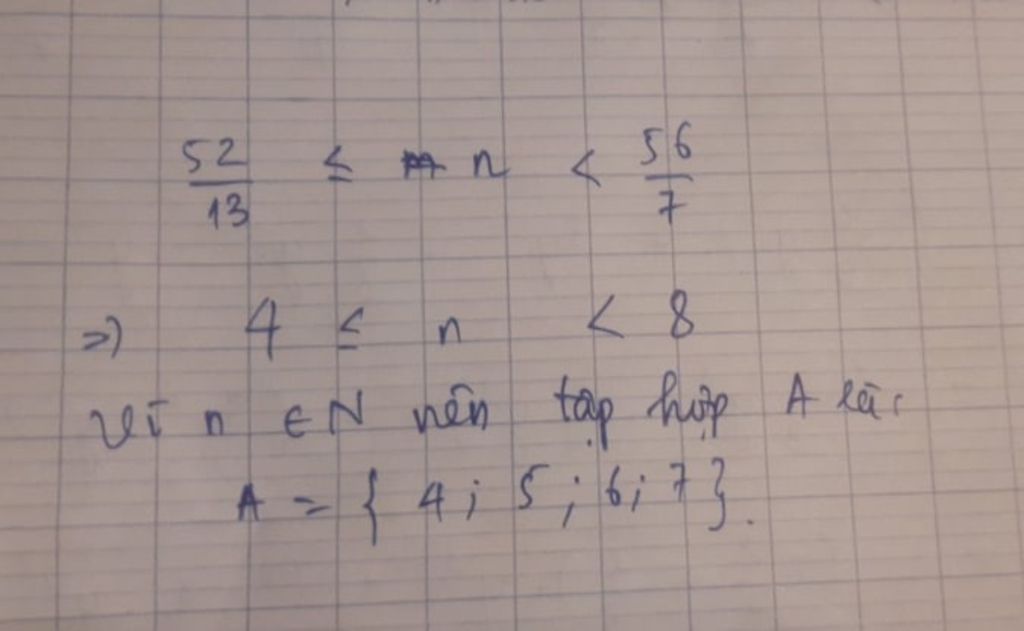 52/13 ≤ n < 56/7
=> 4 ≤ n < 8
Vì n ∈ N nên tập hợp A là:
A = { 4; 5; 6; 7 }.